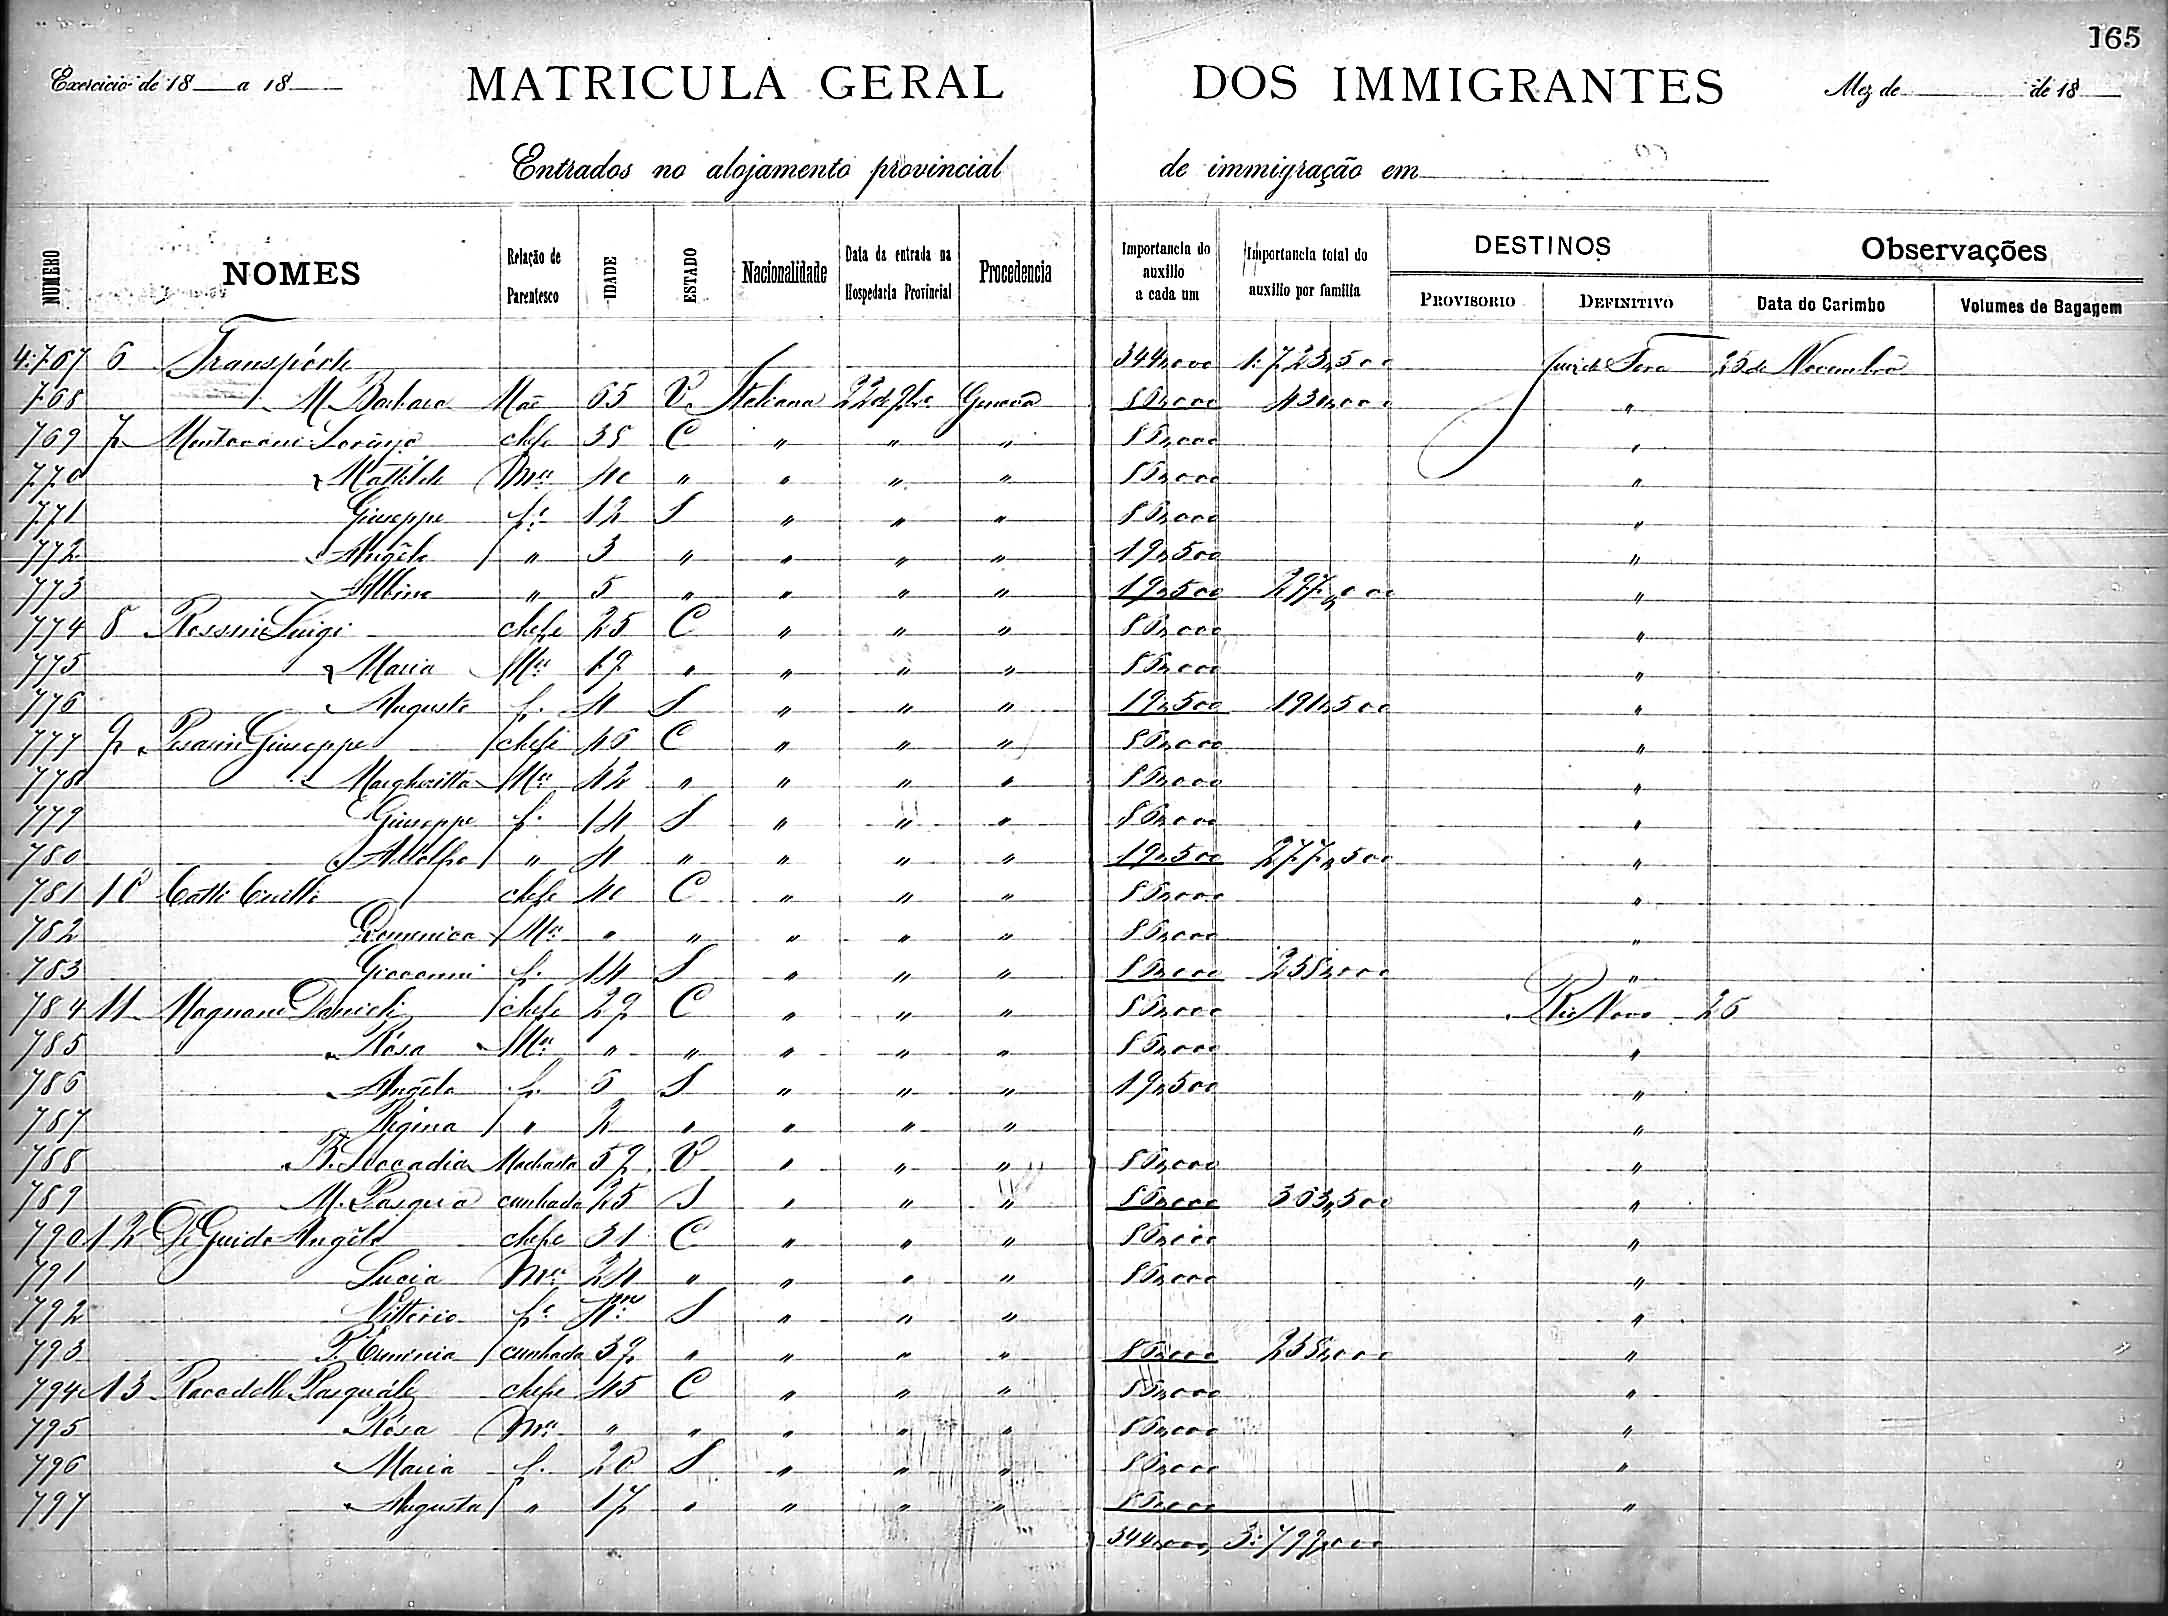 165
Exercicio de 18 a 18 MATRICULA GERAL DOS IMMIGRANTES Mez de de 18
Entrados no alojamento provincial de immigração em
NUMERO NOMES Relação de Parentesco IDADE ESTADO Nacionalidade Data da entrada na Hospedaria Provincial Procedencia Importancia do auxilio a cada um Importancia total do auxilio por familia DESTINOS PROVISORIO DEFINITIVO Observações Data do Carimbo Volumes de Bagagem
4:767 6 Transpórte 344,000 1:723,500 Juiz de Fora 25 de Novembro
768 " M. Barbara Mãe 65 V. Italiana 22 de 9bro Genova 86,000 430,000 "
769 7 Mantovani Lorenzo chefe 38 C " " " 86,000 "
770 " Mathilde Mer 40 " " " " 86,000 "
771 Giuseppe fo 12 S " " " 86,000 "
772 " Angélo " 3 " " " " 19,500 "
773 " Albino " 5 " " " " 19,500 297,000 "
774 8 Rossini Luigi chefe 25 C " " " 86,000 "
775 " Maria Mer 19 " " " " 86,000 "
776 " Augusto f. 4 S " " " 19,500 191,500 "
777 9 Pesarin Giuseppe chefe 46 C " " " 86,000 "
778 " Margheritta Mer 42 " " " " 86,000 "
779 Giuseppe f. 14 S " " " 86,000 "
780 " Adolfo " 4 " " " " 19,500 277,500 "
781 10 chefe 40 C " " " 86,000 "
782 Domenica Mer " " " " " 86,000 "
783 Giovanni f. 14 S " " " 86,000 258,000 "
784 11 Magnani Danieli chefe 29 C " " " 86,000 Rio Novo 26
785 " Rósa Mer " " " " " 86,000 "
786 " Angéla f. 6 S " " " 19,500 "
787 Regina " 2 " " " " "
788 B. Leocadia Madrasta 59 V " " " 86,000 "
789 M. Pasqua cunhada 25 S " " " 86,000 363,500 "
790 12 De Guido Angélo chefe 31 C " " " 86,000 "
791 Lucia Mer 24 " " " " 86,000 "
792 Vittorio fo S " " " "
793 P. Erminia cunhada 39 " " " " 86,000 258,000 "
794 13 Pasquále chefe 45 C " " " 86,000 "
795 Rósa Mer " " " " " 86,000 "
796 " Maria f. 20 S " " " 86,000 "
797 " Augusta " 17 " " " " 86,000 "
344,000 3:799,000